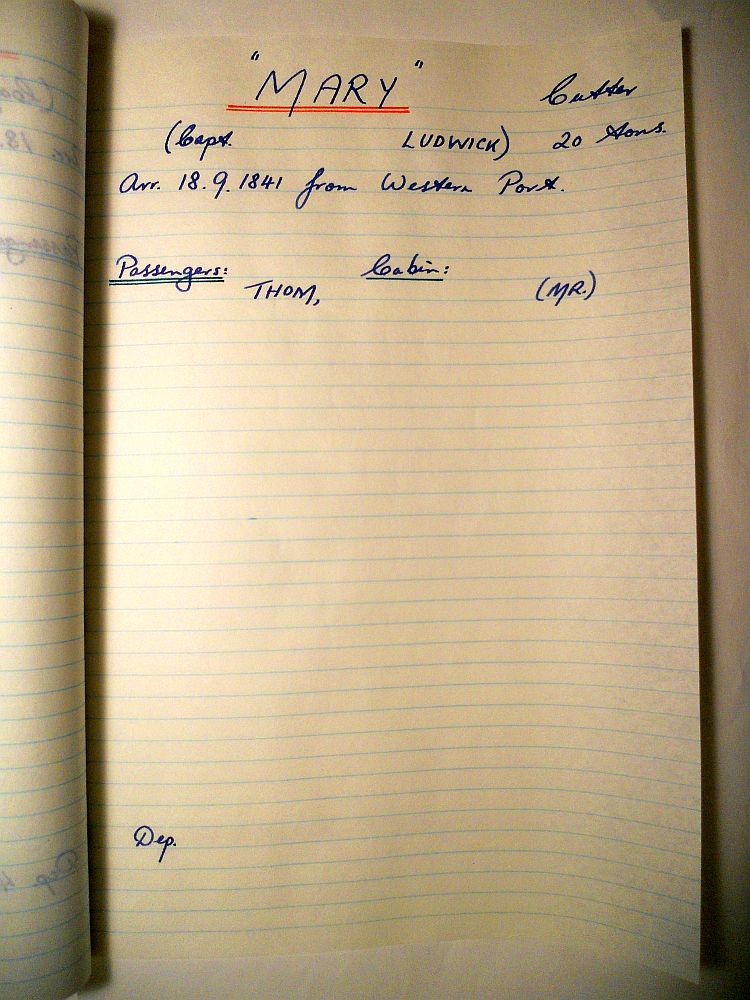 "MARY" Cutter
(Capt. LUDWICK) 20 tons.
Arr. 18.9.1841 from Western Port.
Passengers: Cabin:
THOM, (MR.)
Dep.